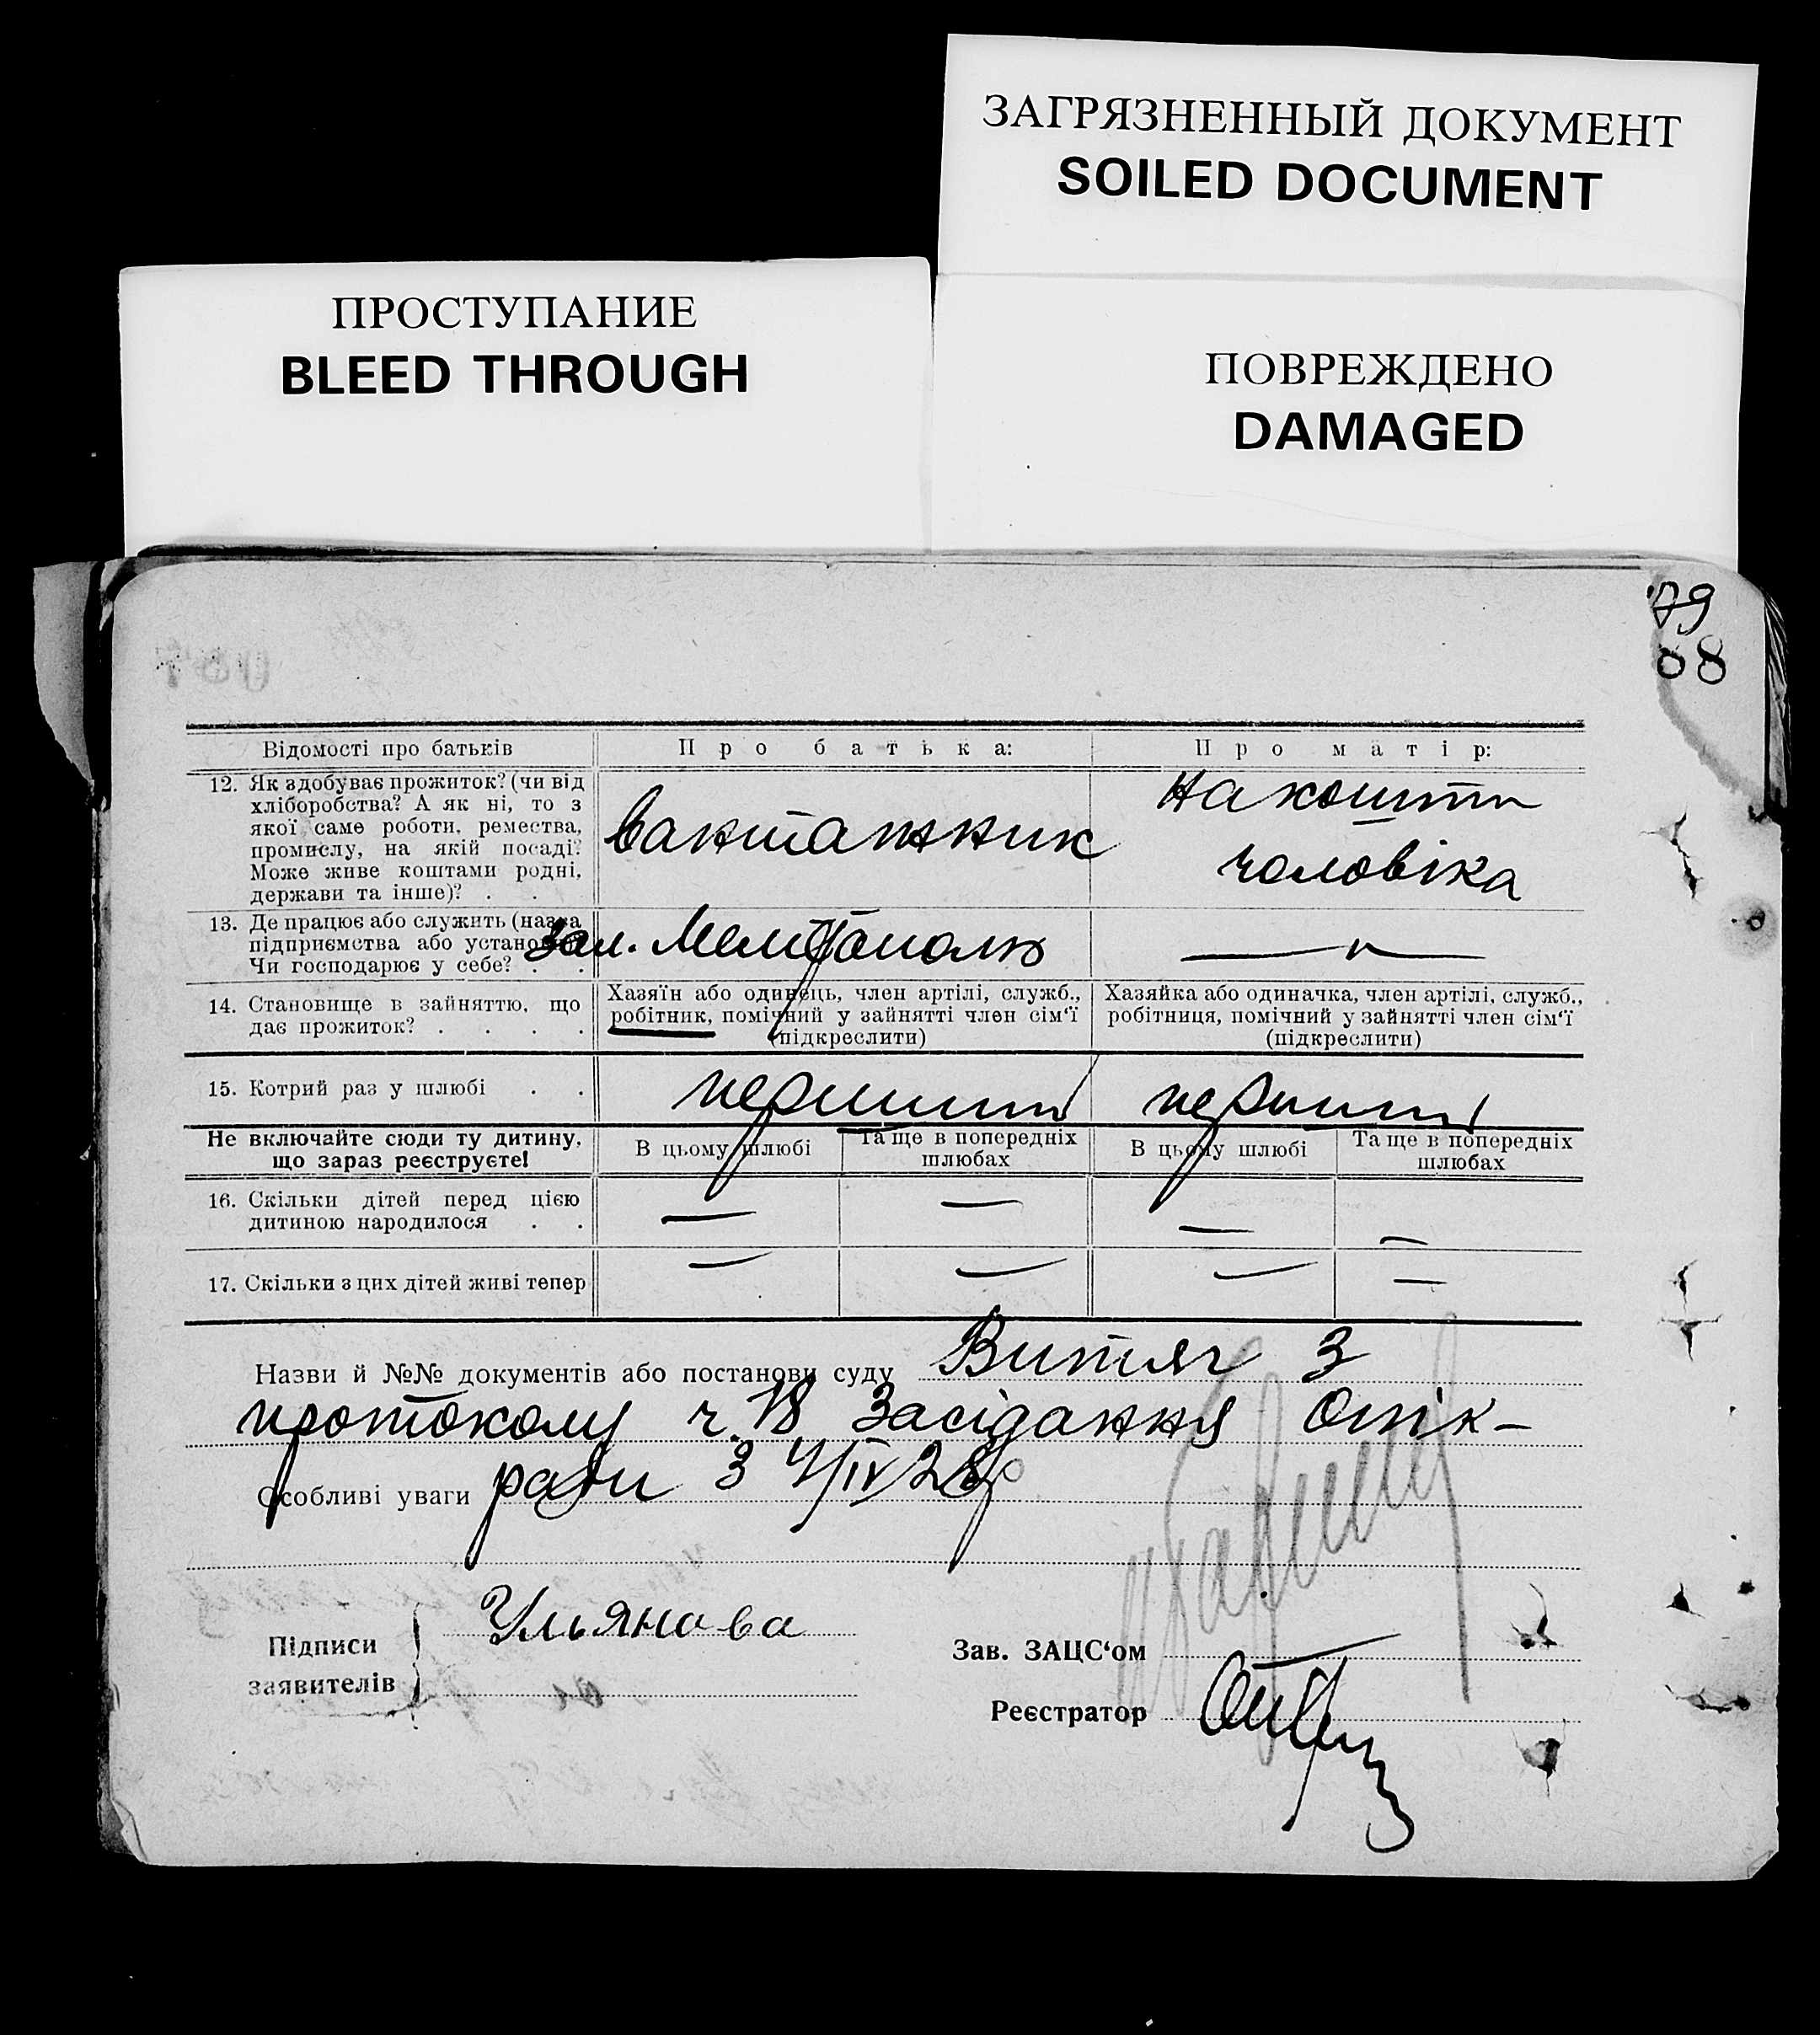 ЗАГРЯЗНЕННЫЙ ДОКУМЕНТ
SOILED DOCUMENT
ПРОСТУПАНИЕ
BLEED THROUGH
ПОВРЕЖДЕНО
DAMAGED
79
88
Відомості про батьків
Про батька:
Про матір:
12. Як здобуває прожиток? (чи від
хліборобства? А як ні, то з
якої саме роботи, ремества,
промислу, на якій посаді?
Може живе коштами родні,
держави та інше)? . .
вантажник
на кошти
чоловіка
13. Де працює або служить (назва
підприємства або установи)
Чи господарює у себе? . .
зал. Мелітополь
— " —
14. Становище в зайняттю, що
дає прожиток? . . . .
Хазяїн або одинець, член артілі, служб.,
робітник, помічний у зайнятті член сім‘ї
(підкреслити)
Хазяйка або одиначка, член артілі, служб.,
робітниця, помічний у зайнятті член сім‘ї
(підкреслити)
15. Котрий раз у шлюбі . .
перший
перший
Не включайте сюди ту дитину,
що зараз реєструєте!
В цьому шлюбі
Та ще в попередніх
шлюбах
В цьому шлюбі
Та ще в попередніх
шлюбах
16. Скільки дітей перед цією
дитиною народилося . .
— — — —
17. Скільки з цих дітей живі тепер
— — — —
Назви й №№ документів або постанови суду Витяг з
протоколу ч. 18 Засідання Опік-
Особливі уваги ради з 4/IV 28р
Підписи
заявителів
Ульянова
Зав. ЗАЦС‘ом
Реєстратор